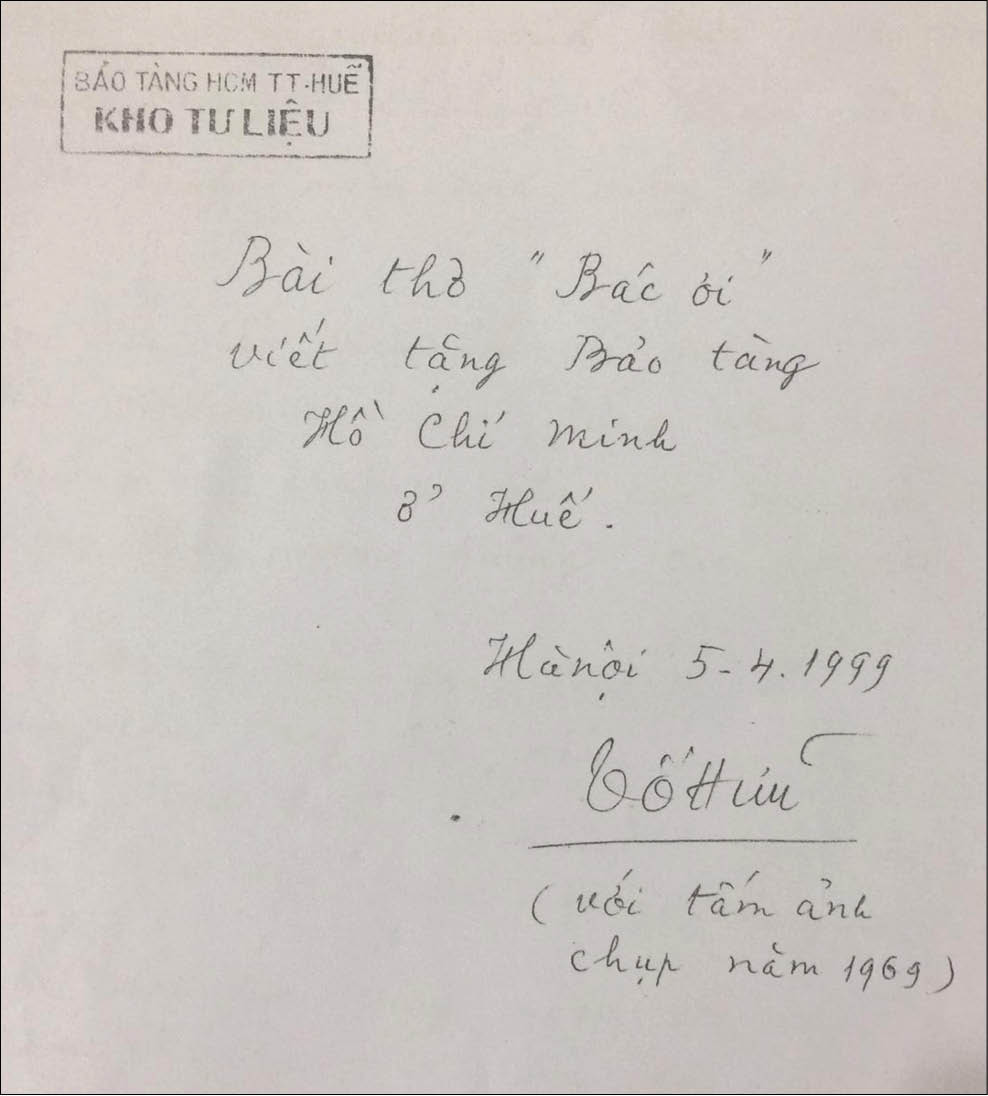 BẢO TÀNG HCM TT-HUẾ
KHO TƯ LIỆU
Bài thơ "Bác ơi"
viết tặng Bảo tàng
Hồ Chí Minh
ở Huế.
Hà nội 5-4.1999
Tố Hữu
(với tấm ảnh
chụp năm 1969)